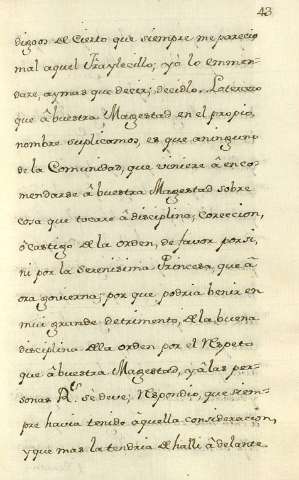 43
digoos de Cierto que siempre me parecio
mal aquel Fraylecillo; yà lo enmen-
dare, aymas que decir; decidlo. Latercero
que â buestra Magestad en el propio
nombre suplicamos, es que aninguno
de la Comunidad, que viniere â en co-
mendarse â buestra Magestad sobre
cosa que tocare â disciplina, Coreccion,
ò castigo de la orden, de favor por si,
ni por la Serenisima Princesa, que â
ora govierna; por que, podria benir en
mui grande detrimento, de la buena
disciplina de la orden por el Respeto
que â buestra Magestad, yâ las per-
sonas Rs. se deve; Respondio, que siem-
pre havia tenido àquella consideracion,
y que mas la tendria de halli â delante